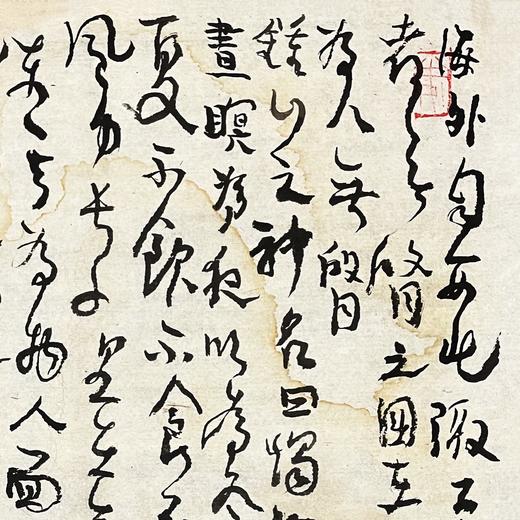 海外自西北陬
者無䏿之國在
為人無䏿
鍾山之神名曰燭
晝瞑為夜吹為冬
夏不飲不食不
風身長千里在無
東其為物人面